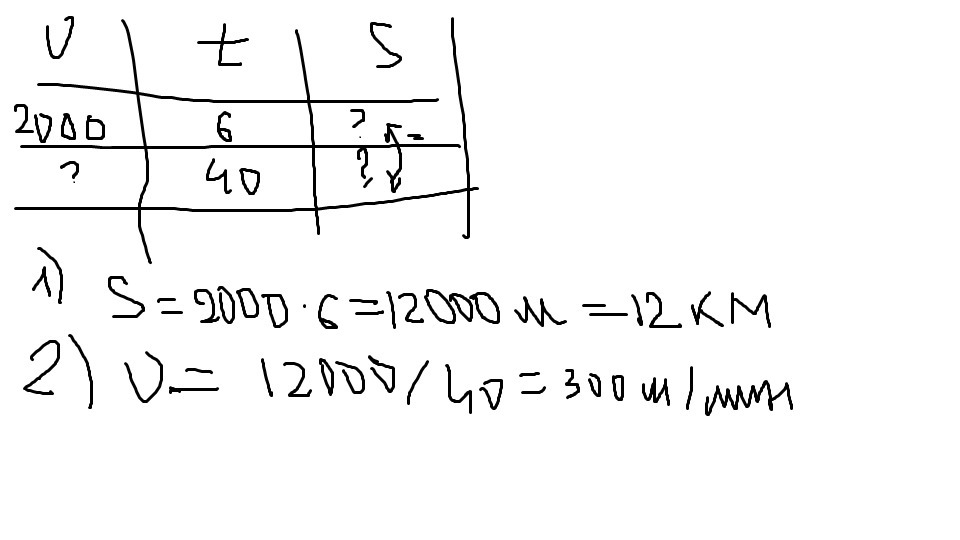 V t S
2000 6 ? =
? 40 ?
1) S = 2000 · 6 = 12000 м = 12 КМ
2) V = 12000 / 40 = 300 м / мин